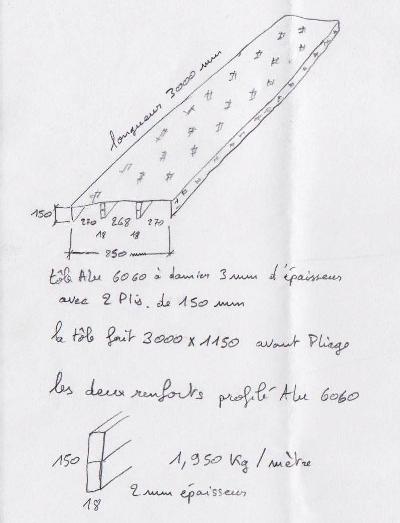 longueur 3000 mm
150
270 268 270
18 18
850 mm
tôle Alu 6060 à damier 3 mm d'épaisseur
avec 2 Plis. de 150 mm
la tôle fait 3000 x 1150 avant Pliage
les deux renforts profilé Alu 6060
150
1,950 Kg / mètre
2 mm épaisseur
18